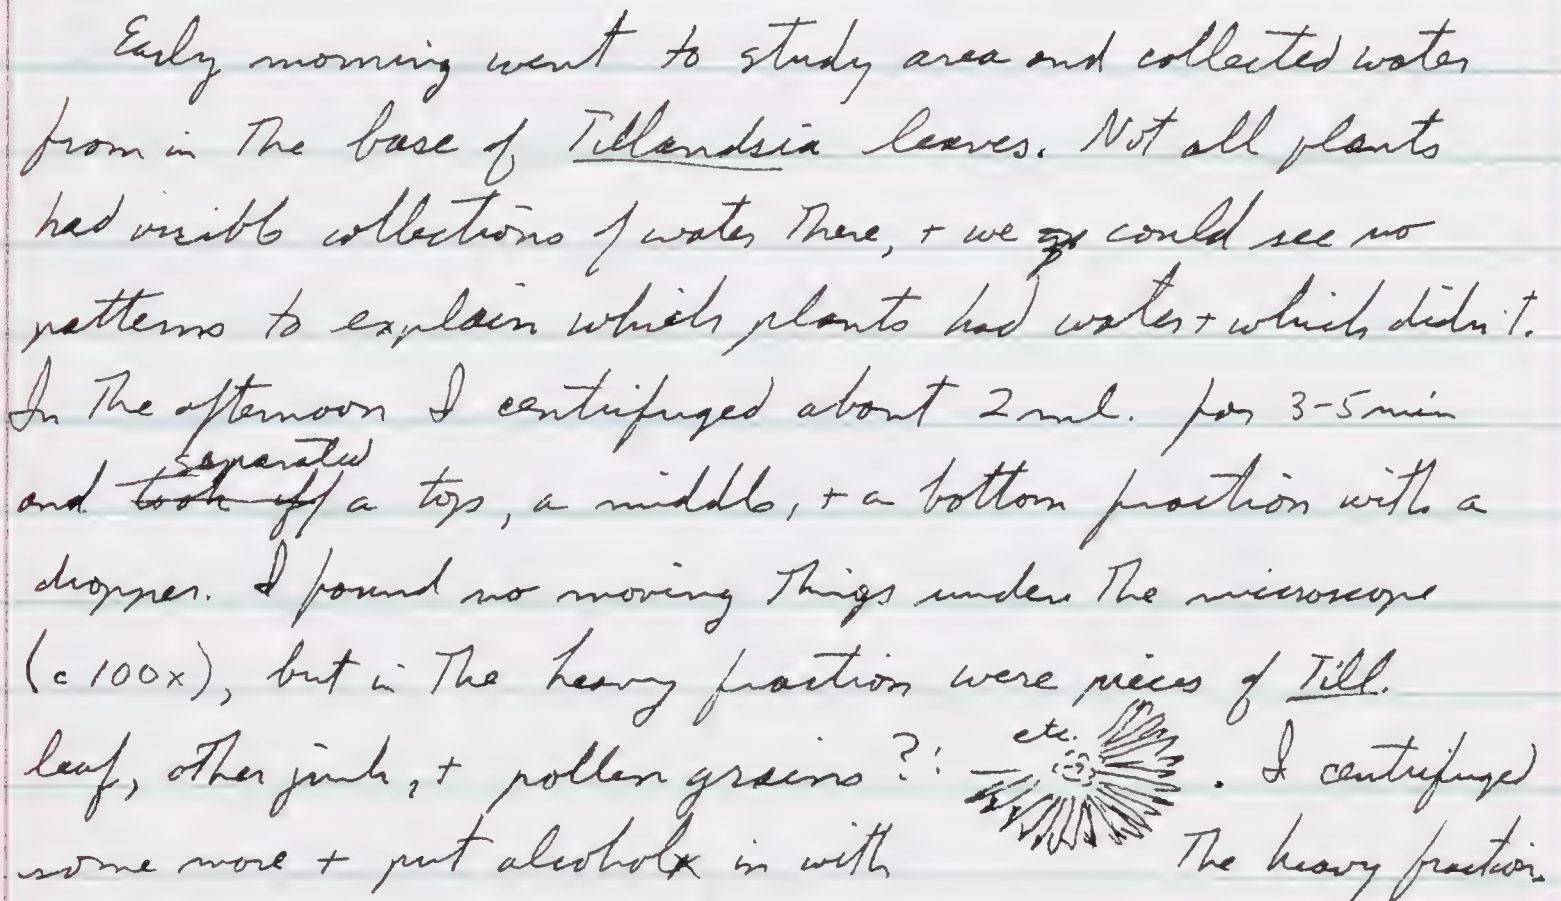 Early morning went to study area and collected water
from in the base of Tillandsia leaves. Not all plants
had visible collections of water there, + we could see no
patterns to explain which plants had water + which didn't.
In the afternoon I centrifuged about 2 ml. for 3-5 min
separated
and took off a top, a middle, + a bottom fraction with a
dropper. I found no moving things under the microscope
(c 100x), but in the heavy fraction were pieces of Till.
leaf, other junk, + pollen grains?: etc. . I centrifuged
some more + put alcohol in with the heavy fraction.